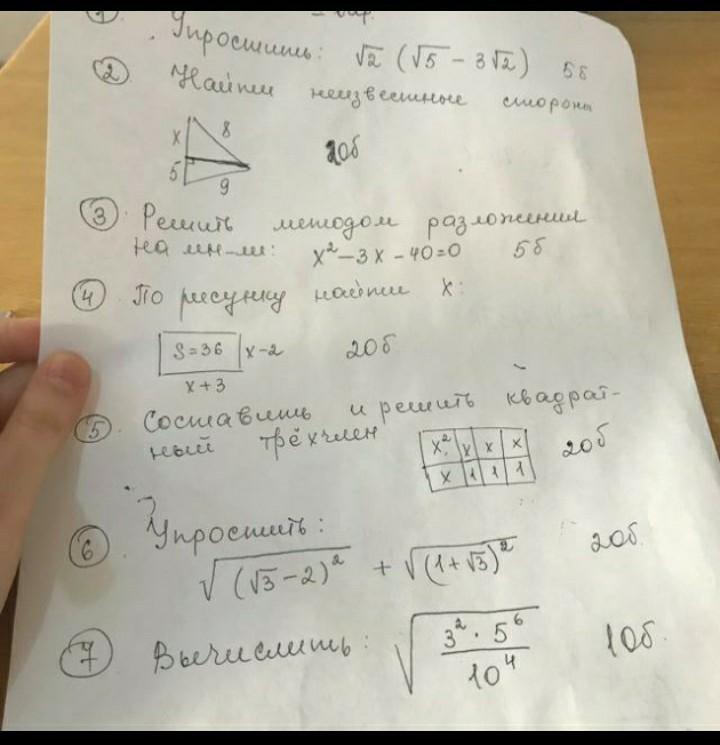 1 вар.
Упростить: √2 (√5 - 3√2) 5б
2 Найти неизвестные стороны
x 8
5 9
20б
3 Решить методом разложения
на мн-ли: x² - 3x - 40 = 0 5б
4 По рисунку найти x:
S = 36 x - 2 20б
x + 3
5 Составить и решить квадрат-
ный трёхчлен 20б
x² x x x
x 1 1 1
6 Упростить:
√(√3 - 2)² + √(1 + √3)² 20б.
7 Вычислить: √(3² · 5⁶ / 10⁴) 10б.